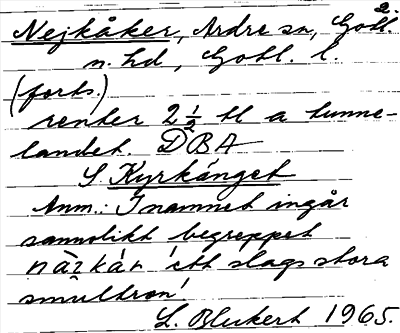 2.
Nejkåker, Ardre sn, Gotl.
n. hd, Gotl. l.
(forts.)
renter 2 1/2 tl a tunne-
landet. DBA
S. Kyrkänget
Anm.: I namnet ingår
sannolikt begreppet
'ett slags stora
smultron'
L. Bleckert 1965.